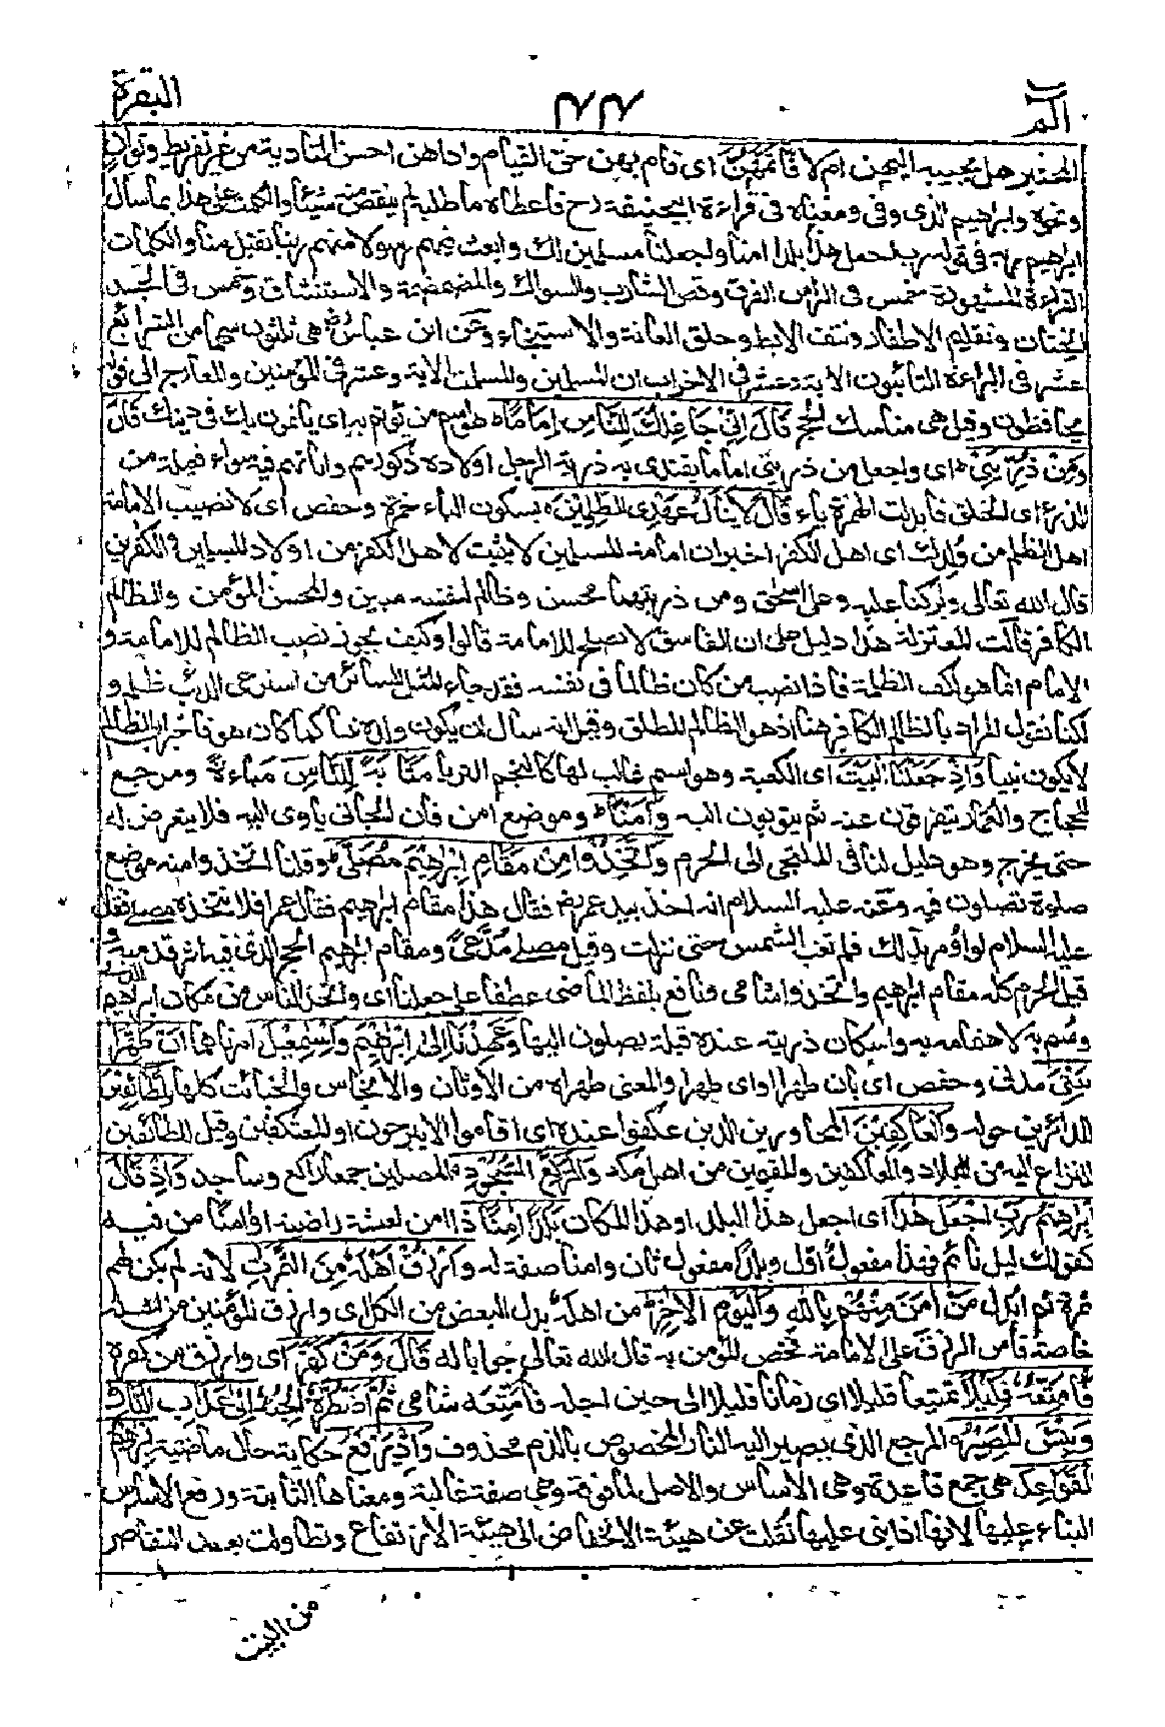 الم
٧٧
البقرة
المختبر هل يجيبه اليهن ام لا فَأَتَمَّهُنَّ اى قام بهن حق القيام واداهن احسن التادية من غير تفريط وتوان
ونحوه وابراهيم الذى وفى ومعناه فى قراءة ابيحنيفة رح فاعطاه ما طلبه لم ينقص منه شيئا والكلمت على هذا ما سأل
ابراهيم ربه فى قوله رب اجعل هذا بلدا امنا واجعلنا مسلمين لك وابعث فيهم رسولا منهم ربنا تقبل منا والكلمات
القراءة المشهورة خمس فى الراس الفرق وقص الشارب والسواك والمضمضة والاستنشاق وخمس فى الجسد
الختان وتقليم الاظفار ونتف الابط وحلق العانة والاستنجاء وعن ابن عباس رض هى ثلثون سهما من الشرائع
عشر فى البراءة التائبون الاية وعشر فى الاحزاب ان المسلمين والمسلمت الاية وعشر فى المؤمنين والمعارج الى قوله
يحافظون وقيل هى مناسك الحج قَالَ اِنِّيْ جَاعِلُكَ لِلنَّاسِ اِمَامًا هو اسم من يؤتم به اى ياتمون بك فى دينك قَالَ
وَمِنْ ذُرِّيَّتِيْ اى واجعل من ذريتى اماما يقتدى به ذرية الرجل اولاده ذكورهم واناثهم فيه سواء فعيلة من
الذرء اى الخلق فابدلت الهمزة ياء قَالَ لَا يَنَالُ عَهْدِى الظّٰلِمِيْنَ بسكون الياء حمزة وحفص اى لا تصيب الامامة
اهل الظلم من ولدك اى اهل الكفر اخبر ان امامة المسلمين لا يثبت لاهل الكفر من اولاد المسلمين والكفرين
قال الله تعالى وبركنا عليه وعلى اسحق ومن ذريتهما محسن وظالم لنفسه مبين والمحسن المؤمن والظالم
الكافر قالت المعتزلة هذا دليل على ان الفاسق لا يصلح للامامة قالوا وكيف يجوز نصب الظالم للامامة و
الامام انما هو لكف الظلمة فاذا نصب من كان ظالما فى نفسه فقد جاء المثل السائر من استرعى الذئب ظلم و
لكنا نقول المراد بالظالم الكافر هنا اذ هو الظالم المطلق وقيل انه سأل ان يكون ولده نبيا كما كان هو فاخبر ان الظالم
لا يكون نبيا وَاِذْ جَعَلْنَا الْبَيْتَ اى الكعبة وهو اسم غالب لها كالنجم للثريا مَثَابَةً لِّلنَّاسِ مباءة ومرجع
للحجاج والعمار يتفرقون عنه ثم يثوبون اليه وَاَمْنًا وموضع امن فان الجانى ياوى اليه فلا يتعرض له
حتى يخرج وهو دليل لنا فى الملتجى الى الحرم وَاتَّخِذُوْا مِنْ مَّقَامِ اِبْرٰهٖمَ مُصَلًّى وقلنا اتخذوا منه موضع
صلوة تصلون فيه وعنه عليه السلام انه اخذ بيد عمر رض فقال هذا مقام ابراهيم فقال عمر افلا نتخذه مصلى فقال
عليه السلام لم اؤمر بذلك فلم تغب الشمس حتى نزلت وقيل مصلى مدعى ومقام ابراهيم الحجر الذى فيه اثر قدميه و
قيل الحرم كله مقام ابراهيم واتخذوا شامى ونافع بلفظ الماضى عطفا على جعلنا اى واتخذ الناس من مكان ابراهيم الذى
وسم به لاهتمامه به واسكان ذريته عنده قبلة يصلون اليها وَعَهِدْنَا اِلٰى اِبْرٰهٖمَ وَاِسْمٰعِيْلَ امرناهما اَنْ طَهِّرَا
بَيْتِيَ مدنى وحفص اى بان طهرا او اى طهرا والمعنى طهراه من الاوثان والانجاس والخبائث كلها لِلطَّآئِفِيْنَ
للدائرين حوله وَالْعَاكِفِيْنَ المجاورين الذين عكفوا عنده اى اقاموا لا يبرحون او المعتكفين وقيل للطائفين
للنزاع اليه من البلاد والعاكفين والمقيمين من اهل مكة وَالرُّكَّعِ السُّجُوْدِ المصلين جمعا راكع وساجد وَاِذْ قَالَ
اِبْرٰهٖمُ رَبِّ اجْعَلْ هٰذَا اى اجعل هذا البلد او هذا المكان بَلَدًا اٰمِنًا ذا امن كعيشة راضية او امنا من فيه
كقولك ليل نائم فهذا مفعول اول وبلدا مفعول ثان وامنا صفة له وَارْزُقْ اَهْلَهٗ مِنَ الثَّمَرٰتِ لانه لم يكن لهم
ثمرة ثم ابدل مَنْ اٰمَنَ مِنْهُمْ بِاللّٰهِ وَالْيَوْمِ الْاٰخِرِ من اهله بدل البعض من الكل اى وارزق المؤمنين من اهله
خاصة قاس الرزق على الامامة فخص المؤمن به قال الله تعالى جوابا له قَالَ وَمَنْ كَفَرَ اى وارزق من كفر
فَاُمَتِّعُهٗ قَلِيْلًا تمتيعا قليلا او زمانا قليلا الى حين اجله فامتعه شامى ثُمَّ اَضْطَرُّهٗٓ الجئه اِلٰى عَذَابِ النَّارِ
وَبِئْسَ الْمَصِيْرُ المرجع الذى يصير اليه النار المخصوص بالذم محذوف وَاِذْ يَرْفَعُ حكاية حال ماضية اِبْرٰهٖمُ
الْقَوَاعِدَ هى جمع قاعدة وهى الاساس والاصل لما فوقه وهى صفة غالبة ومعناها الثابتة ورفع الاساس
البناء عليها لانها اذا بنى عليها نقلت عن هيئة الانخفاض الى هيئة الارتفاع وتطاولت بعد التقاصر
من البيت